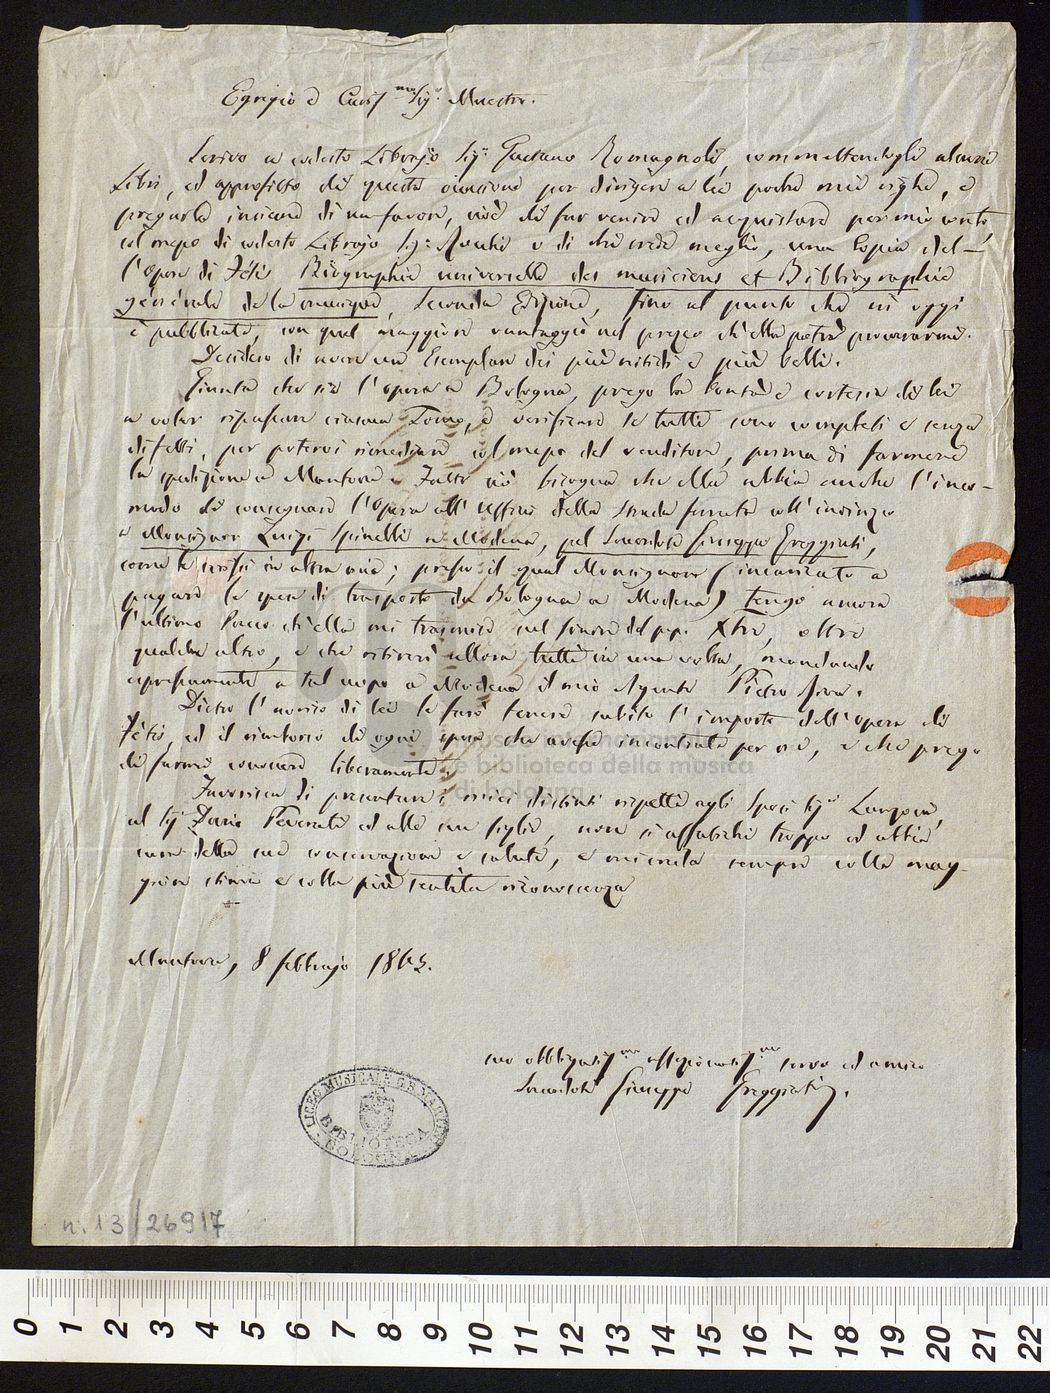 Egregio e Cariss.mo Sig.r Maestro.
Scrivo a codesto Librajo Sig.r Gaetano Romagnoli, commettendogli alcuni
Libri, ed approfitto di questa occasione per dirigere a lei poche mie righe, e
pregarla insieme di un favore, cioè di far venire ed acquistare per mio conto,
col mezzo di codesto Librajo Sig.r o di chi crede meglio, una Copia del-
l'Opera di Fétis Biographie universelle des musiciens et Bibliographie
générale de la musique, Seconda Edizione, fino al punto che in oggi
è pubblicata, con quel maggiore vantaggio nel prezzo ch'ella potrà procurarmi.
Desidero di avere un Esemplare dei più nitidi e più belli.
Giunta che sia l'opera a Bologna, prego la bontà e cortesia di lei
a voler ripassare ciascun Tomo, e verificare se tutti sono completi e senza
difetti, per potervi rimediare col mezzo del venditore, prima di farmene
la spedizione a Mantova. Fatto ciò bisogna che ella abbia anche l'inco-
modo di consegnare l'Opera all'Uffizio della Strada ferrata coll'indirizzo
a Monsignor Luigi Spinelli a Modena, pel Sacerdote Giuseppe Greggiati,
come le scrissi in altra mia; presso il qual Monsignore (incaricato a
pagare le spese di trasporto da Bologna a Modena) tengo ancora
l'ultimo Pacco ch'ella mi trasmise sul finire del p.p. Xbre, oltre
qualche altro, e che ritirerò allora tutti in una volta, mandando
espressamente a tal uopo a Modena il mio Agente Pietro
Dietro l'avviso di lei le farò tenere subito l'importo dell'opera di
Fétis, ed il rimborso di ogni spesa che avesse incontrata per me, e che prego
di farmi conoscere liberamente.
Favorisca di presentare i miei distinti rispetti agli Sposi Sig.ri
al Sig.r Dario ed alla sua figlia, non si affatichi troppo ed abbia
cura della sua conservazione e salute, e mi creda sempre colla mag-
gior stima e colla più sentita riconoscenza
Mantova, 8 febbrajo 186
suo obbligatiss.mo affezionatiss.mo servo ed amico
Sacerdote Giuseppe Greggiati.
LICEO MUSICALE G.B. MARTINI
BIBLIOTECA
BOLOGNA
n. 13/26917
museo internazionale
e biblioteca della musica
di bologna
0 1 2 3 4 5 6 7 8 9 10 11 12 13 14 15 16 17 18 19 20 21 22